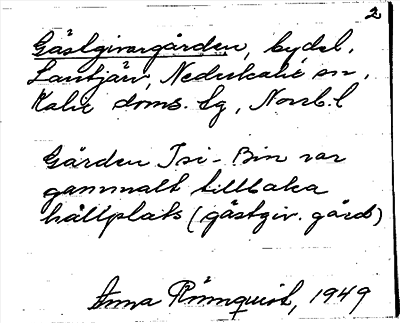 2
Gästgivargården, bydel,
Lantjärv, Nederkalix sn,
Kalix doms. lg, Norrb. l
Gården Isi-Bin var
gammalt tillbaka
hållplats (gästgiv. gård)
Anna Rönnquist, 1949